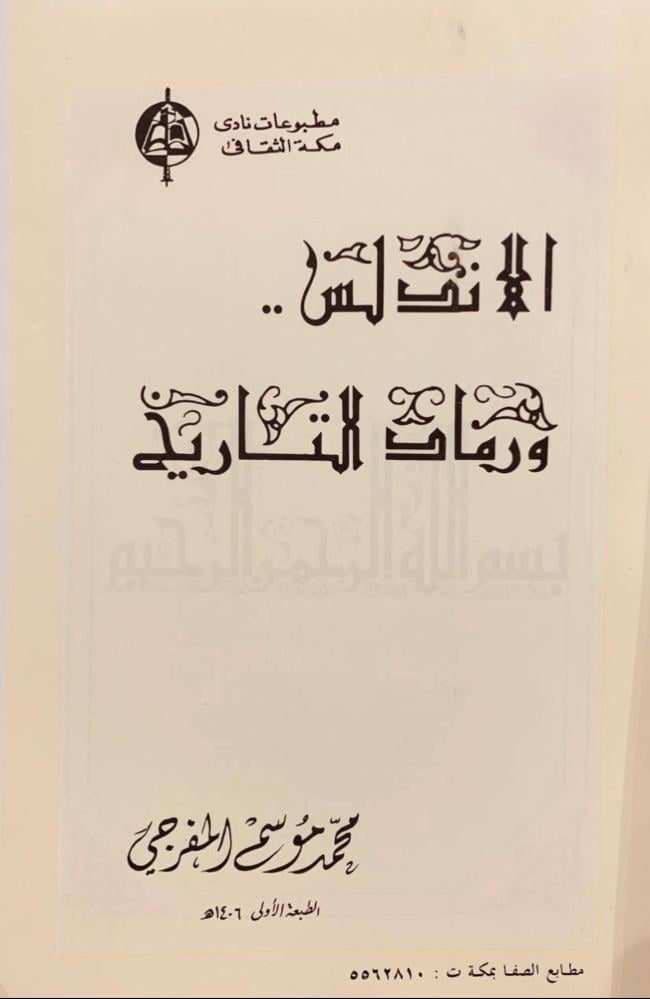 مطبوعات نادى
مكة الثقافى
الاندلس ..
ورماد التاريخ
بسم الله الرحمن الرحيم
محمّد مُوسم المفرجي
الطبعة الأولى ١٤٠٦هـ
مطابع الصفا بمكة ت : ٥٥٦٢٨١٠